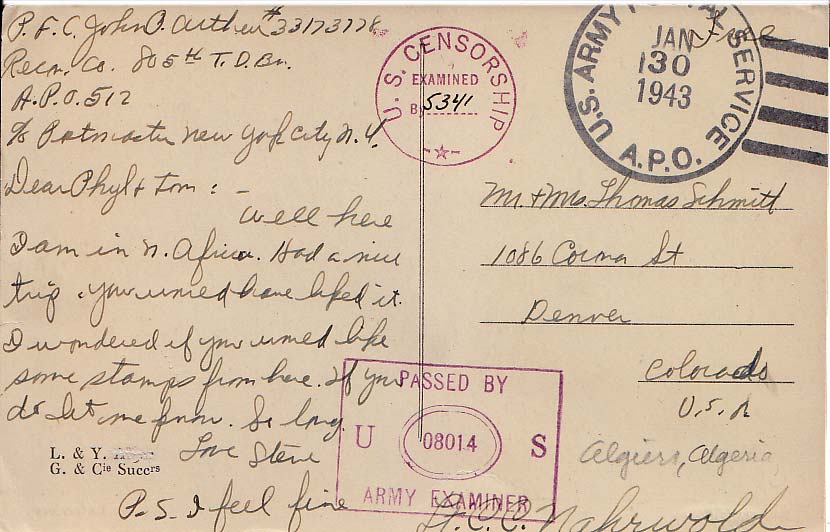 P.F.C. John P. Arthur #33173778
Recn. Co. 805th T.D.Bn.
A.P.O. 512
c/o Postmaster New York City N.Y.
Dear Phyl & Tom: -
Well here
I am in N. Africa. Had a nice
trip. You would have liked it.
I wondered if you would like
some stamps from here. If you
do let me know. So long
Love Steve
P.S. I feel fine
L. & Y.
G. & Cie Succrs
U.S. CENSORSHIP
EXAMINED
By 5341
U.S. ARMY POSTAL SERVICE
JAN
30
1943
A.P.O.
Free
Mr. & Mrs. Thomas Schmitt
1086 St
Denver
Colorado
U.S.A
Algiers, Algeria
PASSED BY
U 08014 S
ARMY EXAMINER